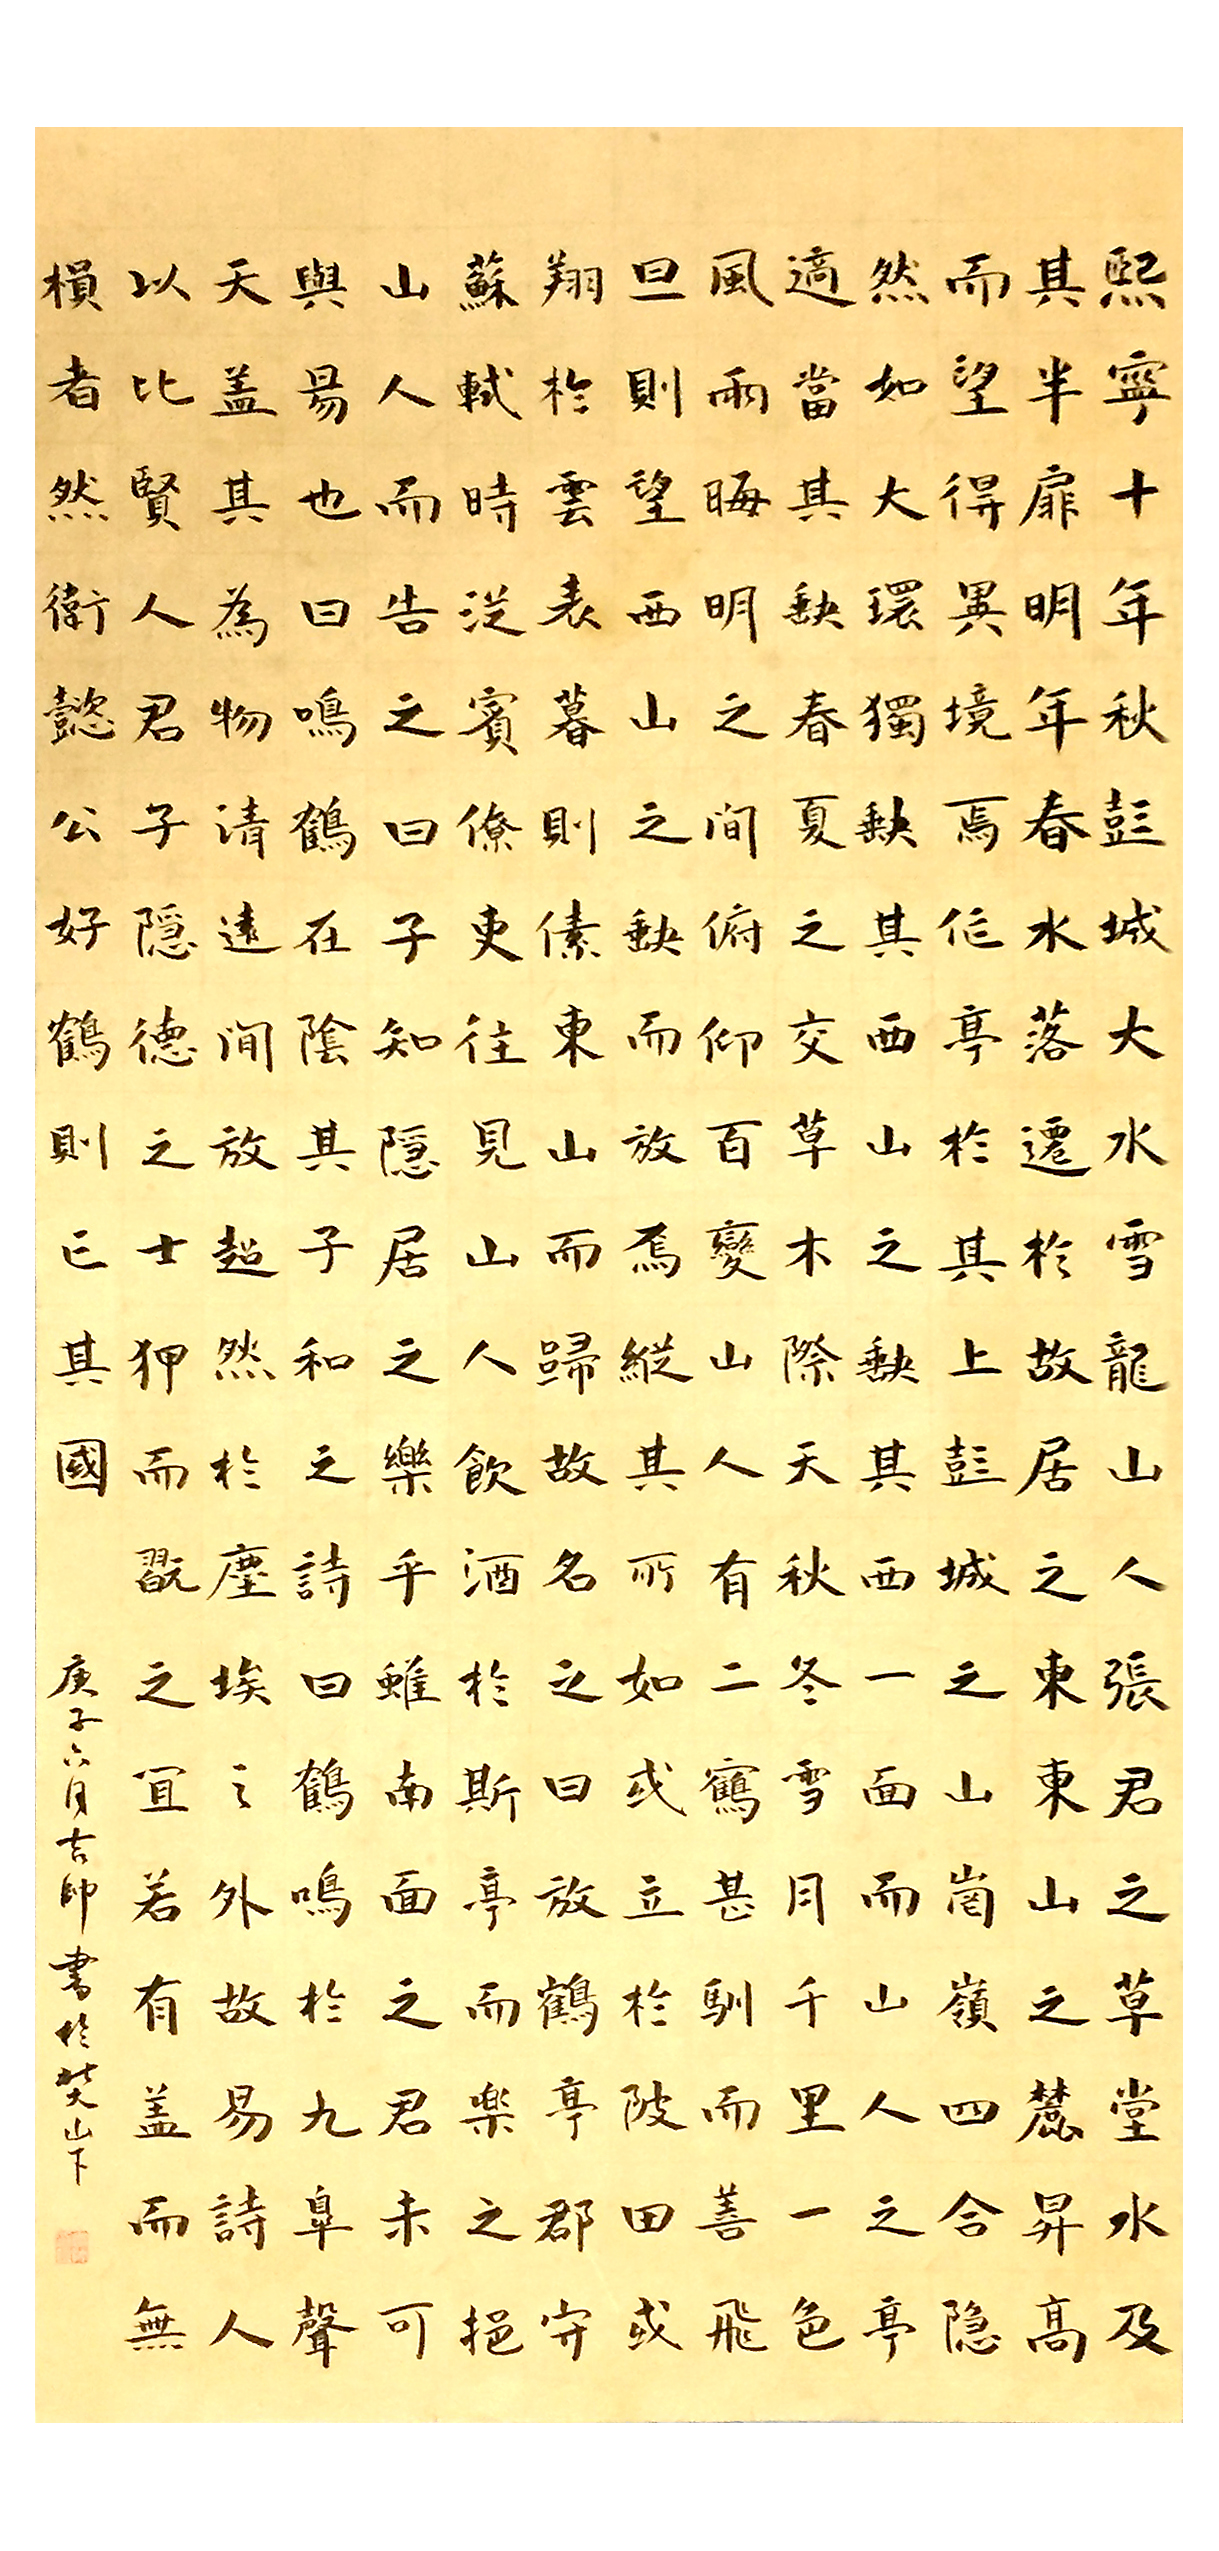 熙寧十年秋彭城大水雪龍山人張君之草堂水及
其半扉明年春水落遷於故居之東東山之麓昇高
而望得異境焉作亭於其上彭城之山崗嶺四合隐
然如大環獨缺其西山之缺其西一面而山人之亭
適當其缺春夏之交草木際天秋冬雪月千里一色
風雨晦明之间俯仰百變山人有二鶴甚馴而善飛
旦則望西山之缺而放焉縱其所如或立於陂田或
翔於雲表暮則傃東山而歸故名之曰放鶴亭郡守
蘇軾時從賓僚吏往見山人飲酒於斯亭而楽之挹
山人而告之曰子知隱居之樂乎雖南面之君未可
與易也曰鳴鶴在陰其子和之詩曰鶴鳴於九皐聲
天盖其為物清遠间放超然於塵埃之外故易詩人
以比賢人君子隱德之士狎而翫之宜若有盖而無
損者然衛懿公好鶴則亡其國
庚子六月吉帥書於焚山下